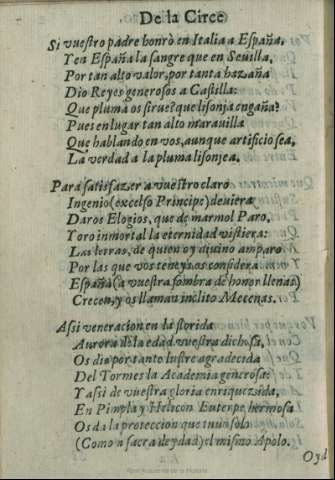 De la Circe
Si vuestro padre honrò en Italia a España,
Y en España la sangre que en Seuilla,
Por tan alto valor, por tanta hazaña
Dio Reyes generosos a Castilla:
Que pluma os sirue? que lisonja engaña?
Pues en lugar tan alto marauilla
Que hablando en vos, aunque artificio sea,
La verdad a la pluma lisonjea.
Para satisfazer a vuestro claro
Ingenio (excelso Principe) deuiera
Daros Elogios, que de marmol Paro,
Y oro inmortal la eternidad vistiera:
Las letras, de quien oy diuino amparo
Por las que vos teneys os considera
España (a vuestra sombra de honor llenas)
Crecen, y os llaman inclito Mecenas.
Assi veneracion en la florida
Aurora de la edad vuestra dichosa,
Os dia por tanto lustre agradecida
Del Tormes la Academia generosa:
Y assi de vuestra gloria enriquezida,
En Pimpla y Helicon Euterpe hermosa
Os da la proteccion que tuuo solo
(Como a sacra deydad) el mismo Apolo.
Oyd